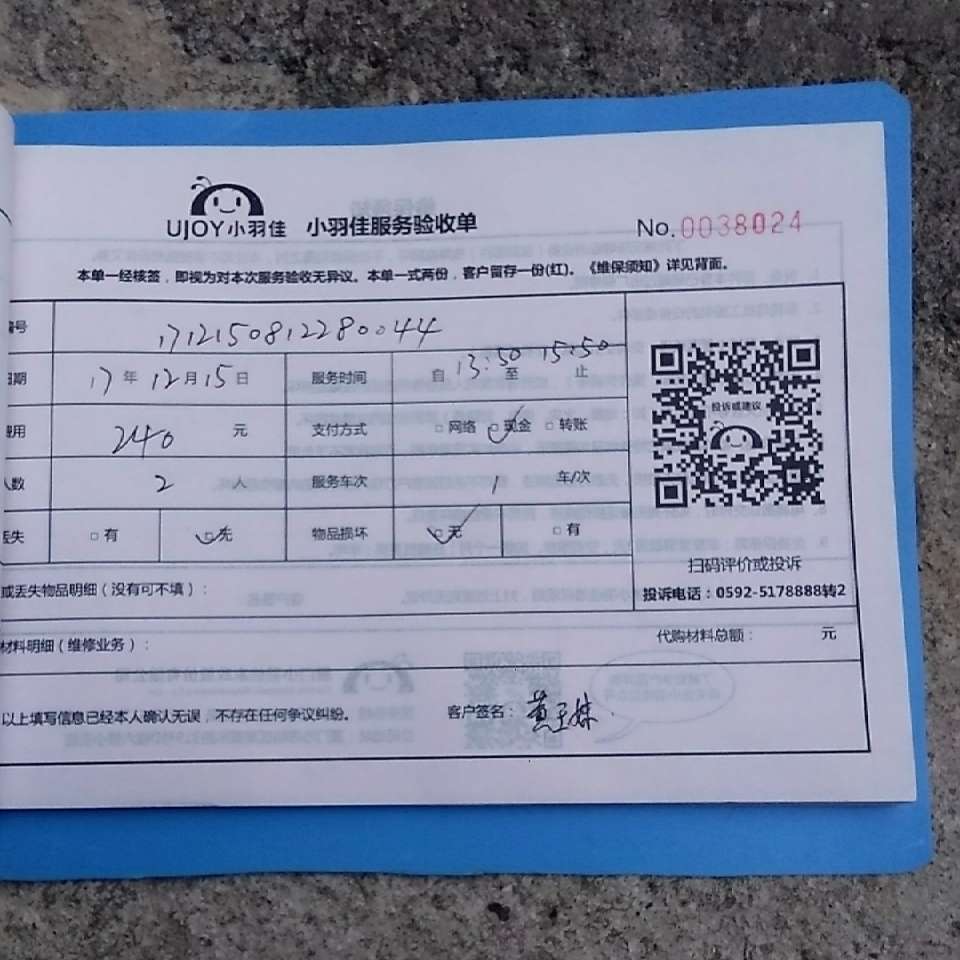 UJOY小羽佳 小羽佳服务验收单 No.0038024
本单一经核签，即视为对本次服务验收无异议。本单一式两份，客户留存一份(红)。《维保须知》详见背面。
编号 1712150812280044
日期 17年12月15日 服务时间 自13:50至15:50止
费用 240 元 支付方式 □网络 □现金 □转账
人数 2 人 服务车次 1 车/次
丢失 □有 □无 物品损坏 □无 □有
投诉或建议
扫码评价或投诉
投诉电话：0592-5178888转2
或丢失物品明细（没有可不填）：
材料明细（维修业务）： 代购材料总额： 元
以上填写信息已经本人确认无误，不存在任何争议纠纷。 客户签名：黄玉妹